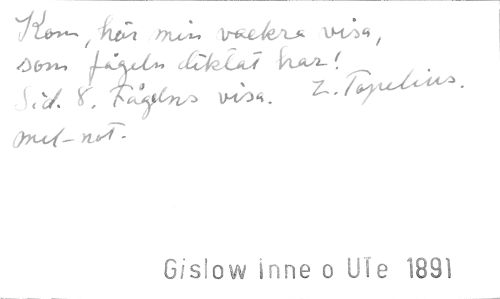 Kom, hör min vackra visa,
som fågeln diktat har!
Sid. 8. Fågelns visa. Z. Topelius.
mel-not.
Gislow Inne o Ute 1891